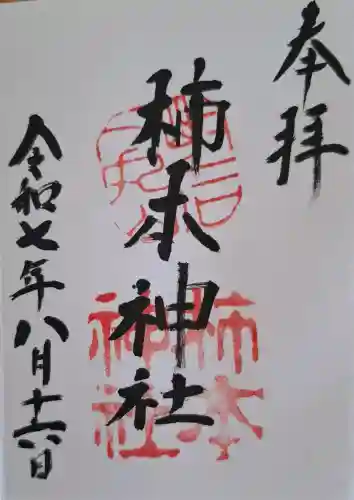 奉拝
柿本神社
令和七年八月十六日
柿本
神社